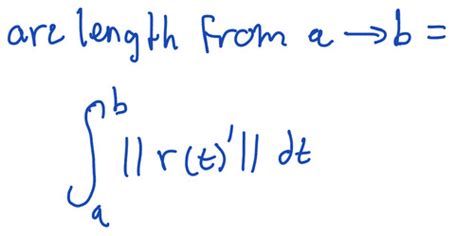 arc length from a → b =
∫_a^b || r(t)' || dt